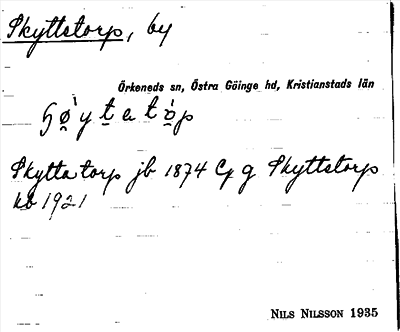 Skyttetorp, by
Örkeneds sn, Östra Göinge hd, Kristianstads län
Skyttatorp jb 1874 Cf g Skyttetorp
kb 1921
NILS NILSSON 1935